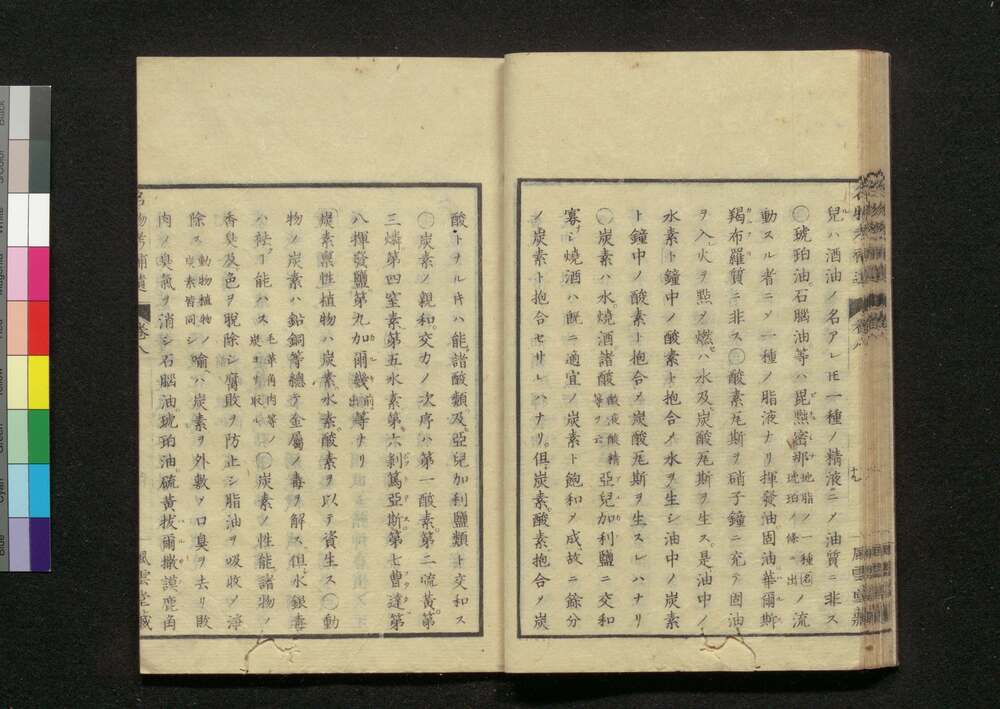 兒ハ酒油ノ名アレ𪜈一種ノ精液ニメ油質ニ非ス
琥珀油石腦油等ハ毘㷠密那地脂ノ一種名琥珀ノ條ニ出ノ流
動スル者ニ〆一種ノ脂液ナリ揮發油固油華爾斯
羯布羅質ニ非ス㊂酸素瓦斯ヲ硝子鐘ニ充テ固油
ヲ入火ヲ㸃〆燃ハ水及炭酸瓦斯ヲ生ス是油中ノ
水素ト鐘中ノ酸素ト抱合〆水ヲ生シ油中ノ炭素
ト鐘中ノ酸素ト抱合〆炭酸瓦斯ヲ生スレハナリ
〇炭素ハ水燒酒諸酸酸液酸精等ヲ云亞兒加利鹽ニ交和
寡シ燒酒ハ既ニ適宜ノ炭素ト飽和〆成故ニ餘分
ノ炭素ト抱合セサレハナリ但炭素酸素抱合〆炭
酸トナル片ハ能諸酸類及亞兒加利鹽類ト交和ス
炭素ノ親和交力ノ次序ハ第一酸素第二硫黃第
三燐第四窒素第五水素第六剥篤亞斯第七曹達第
八揮發鹽第九加爾幾前出等ナリ
炭素稟性植物ハ炭素水素酸素ヲ以テ資生ス〇動
物ノ炭素ハ鉛銅等總テ金屬ノ毒ヲ解ス但水銀毒
ハ祛丁能ハス毛革角肉等ノ炭ヨリ取ル〇炭素ノ性能諸物ノ
香臭及色ヲ脫除シ腐敗ヲ防止シ脂油ヲ吸收〆淨
除ス動物植物ノ炭素皆同シ喻ハ炭素ヲ外敷〆口臭ヲ去リ敗
肉ノ臭氣ヲ消シ石腦油琥珀油硫黃拔爾撒謨鹿角
名物考補遺 卷八 風雲堂藏